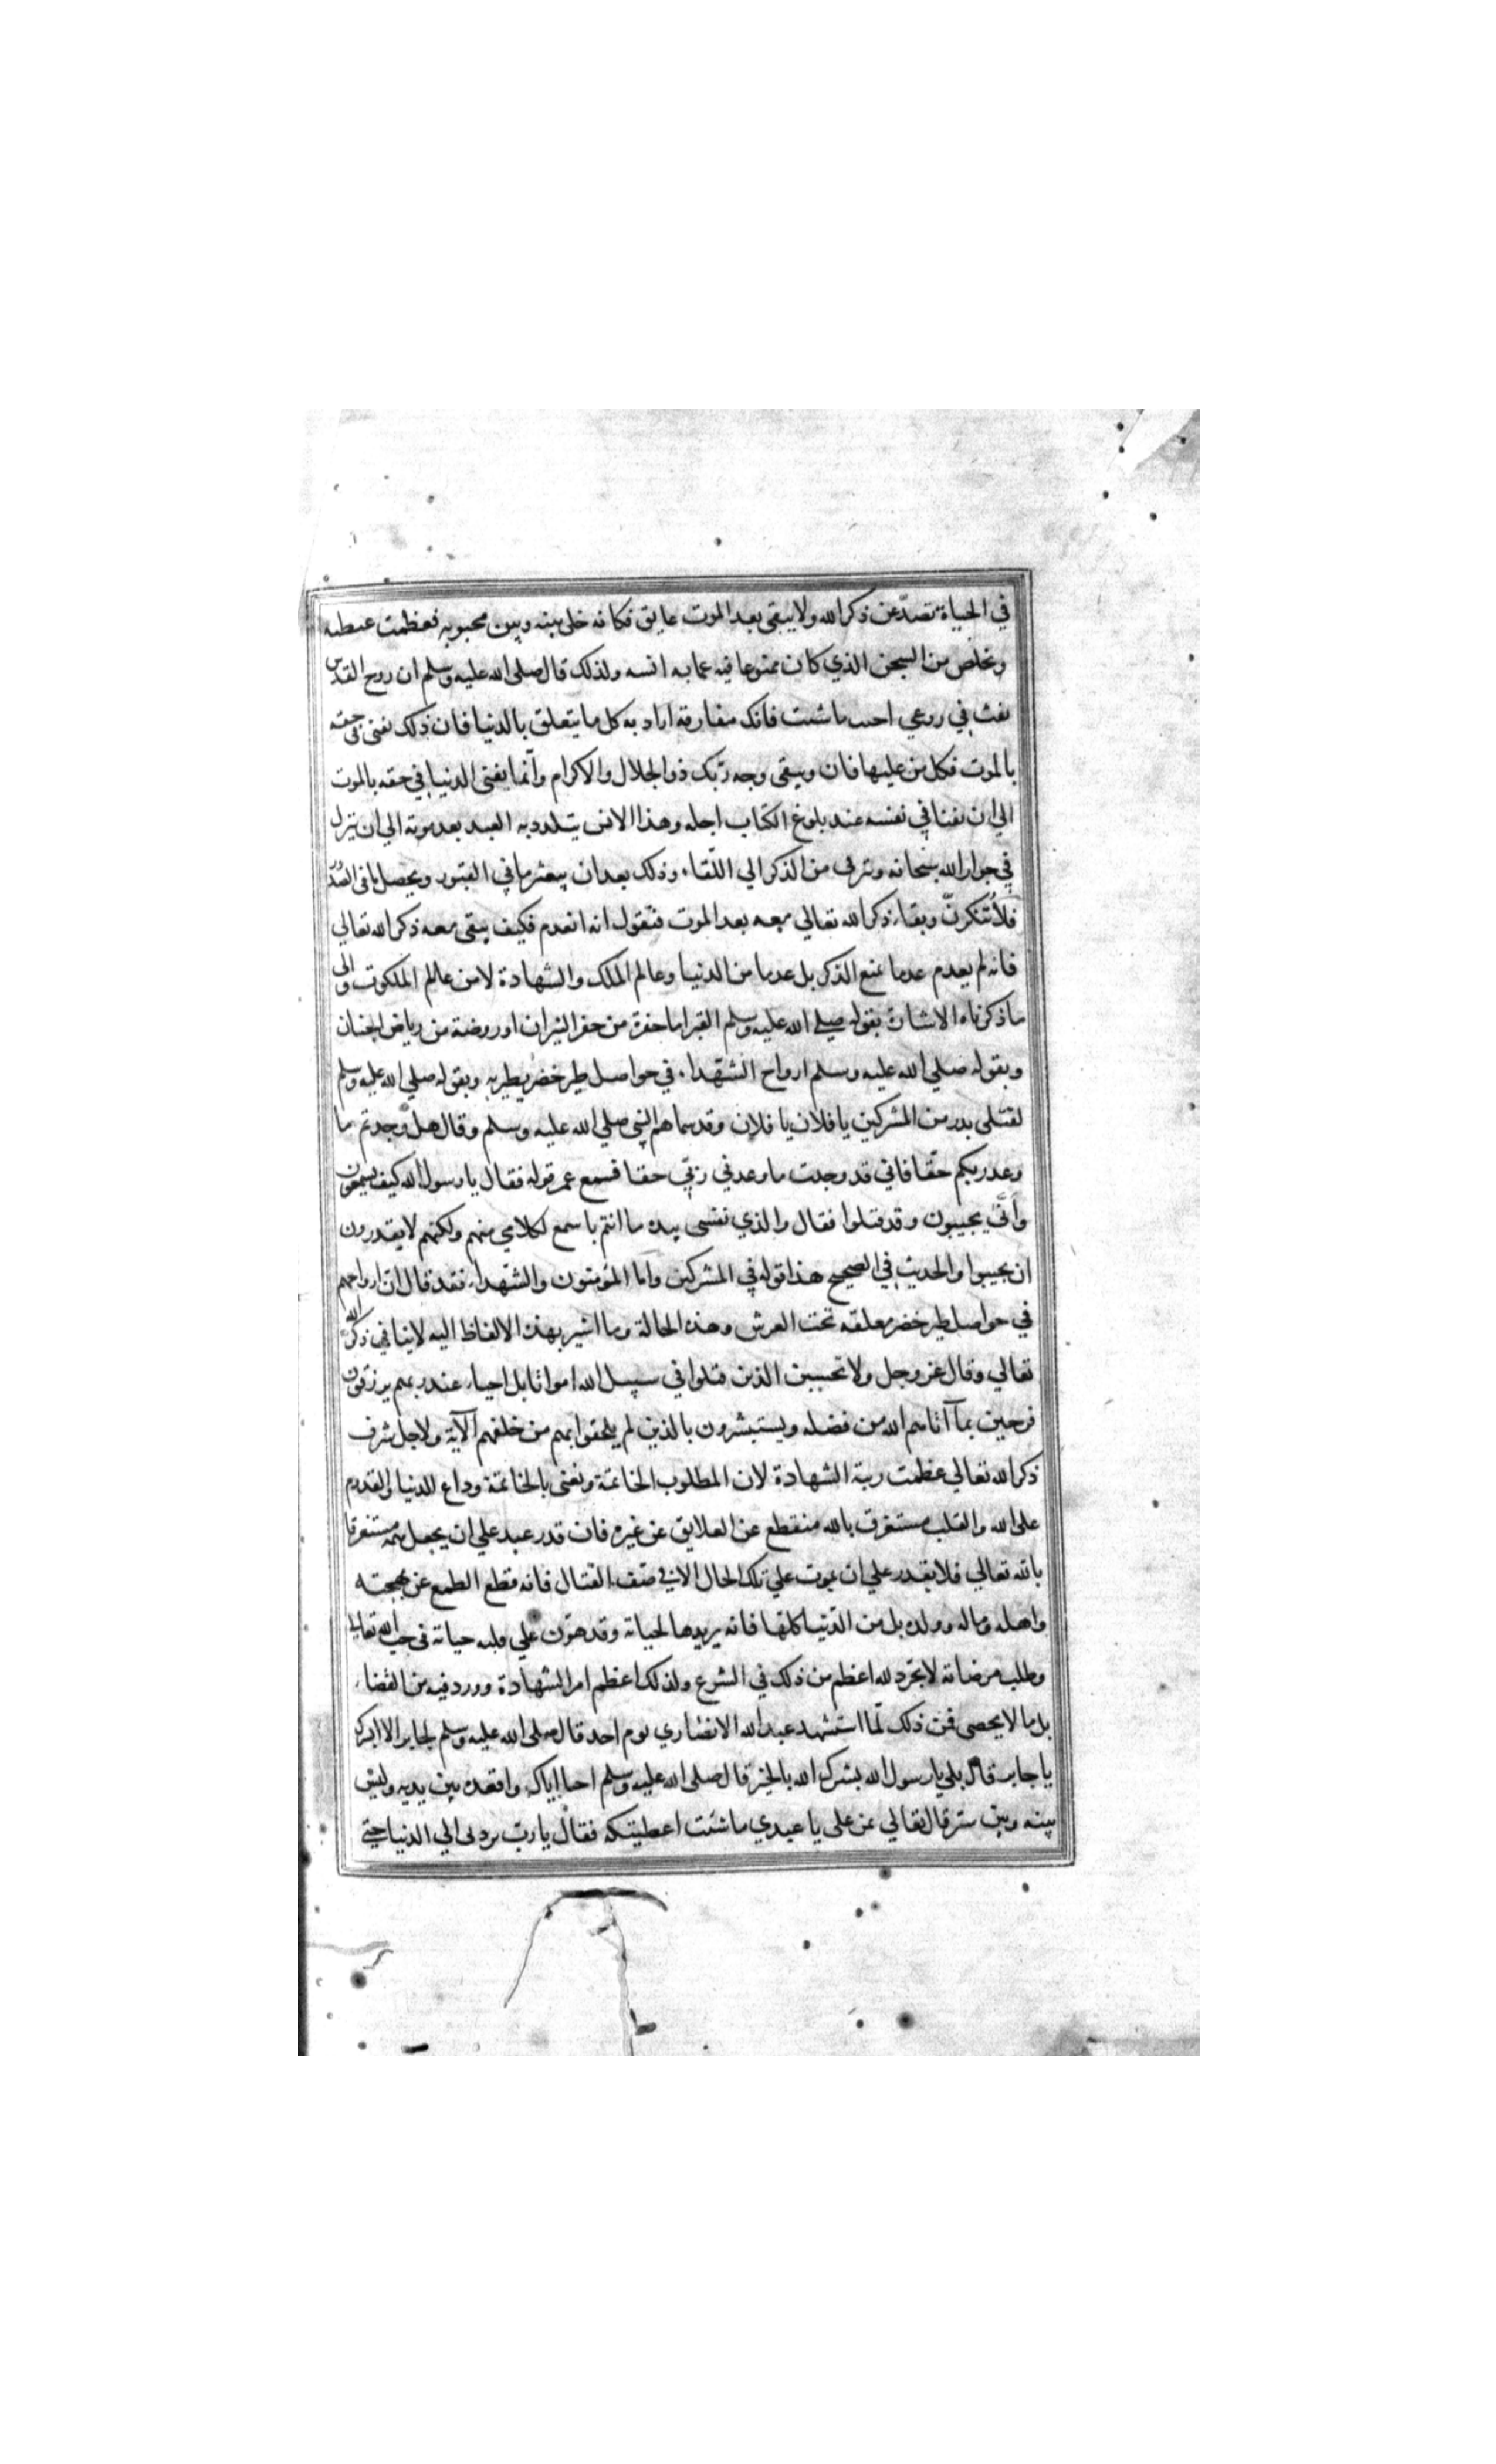 في الحياة تصدّ عن ذكر الله ولا يبقى بعد الموت عايق فكانه خلى بينه وبين محبوبه فعظمت غبطته
وتخلص من السجن الذي كان ممنوعا فيه عما به انسه ولذلك قال صلى الله عليه وسلم ان روح القدس
نفث في روعي احبب ما شئت فانك مفارقه اراد به كل ما يتعلق بالدنيا فان ذلك يفنى في حقه
بالموت فكل من عليها فان ويبقى وجه ربّك ذو الجلال والاكرام وانّما يفنى الدنيا في حقه بالموت
الي ان يفنا في نفسه عند بلوغ الكتاب اجله وهذا الانس يتلدد به العبد بعد موته الي ان ينزل
في جوار الله سبحانه وترقى من الذكر الي اللّقاء وذلك بعد ان يبعثر ما في القبور ويحصل ما في الصُّدُ
فلا تنكرنّ وبقاء ذكر الله تعالي معه بعد الموت فتقول انه انعدم فكيف يبقى معه ذكر الله تعالي
فانه لم يعدم عدما يمنع الذكر بل عدما من الدنيا وعالم الملك والشهادة لا من عالم الملكوت والى
ما ذكرناه الاشارة بقوله صلي الله عليه وسلم القبر اما حفرة من حفر النيران او روضة من رياض الجنان
وبقوله صلي الله عليه وسلم ارواح الشهداء في حواصل طير خضر يطير به وبقوله صلي الله عليه وسلم
لقتلى بدر من المشركين يا فلان يا فلان وقد سماهم النبي صلي الله عليه وسلم وقال هل وجدتم ما
وعد ربكم حقّا فاني قد وجدت ما وعدني ربّي حقا فسمع عمر قوله فقال يا رسول الله كيف يسمعون
وانّي يجيبون وقد قتلوا فقال والذي نفسي بيده ما انتم باسمع لكلامي منهم ولكنهم لا يقدرون
ان يجيبوا والحديث في الصحيح هذا قوله في المشركين وامّا المؤمنون والشهداء فقد قال ان ارواحهم
في حواصل طير خضر معلقه تحت العرش وهذه الحالة وما اشير بهذه الالفاظ اليه لاينافي ذكر الله
تعالي وقال عز وجل ولا تحسبين الذين قتلوا في سبيل الله امواتا بل احياء عند ربهم يرزقون
فرحين بمآ آتاهم الله من فضله ويستبشرون بالذين لم يلحقوا بهم من خلفهم الآية ولاجل شرف
ذكر الله تعالي عظمت رتبة الشهادة لان المطلوب الخاتمة ونعنى بالخاتمة وداع للدنيا والقدوم
على الله والقلب مستغرق بالله منقطع عن العلايق عن غيره فان قدر عبد علي ان يجعل همه مستغرقا
بالله تعالي فلا يقدر علي ان يموت علي تلك الحال الا في صف القتال فانه قطع الطمع عن مهجته
واهله وماله وولده بل من الدّنيا كلها فانه يريدها لحياته وقد هوّن علي قلبه حياته في حب الله تعالي
وطلب مرضاته لا تجرّد لله اعظم من ذلك في الشرع ولذلك اعظم امر الشهادة وورد فيه من الفضاء
بل ما لا يحصى فمن ذلك لمّا استشهد عبد الله الانصاري يوم احد قال صلى الله عليه وسلم لجابر الا ابشرك
يا جابر قال بلي يا رسول الله بشرك الله بالخير قال صلى الله عليه وسلم احيا اباك واقعده بين يديه وليس
بينه وبين ستر قال تعالي عن على يا عبدي ما شئت اعطيتكه فقال يا ربّ تردنى الي الدنيا حتي